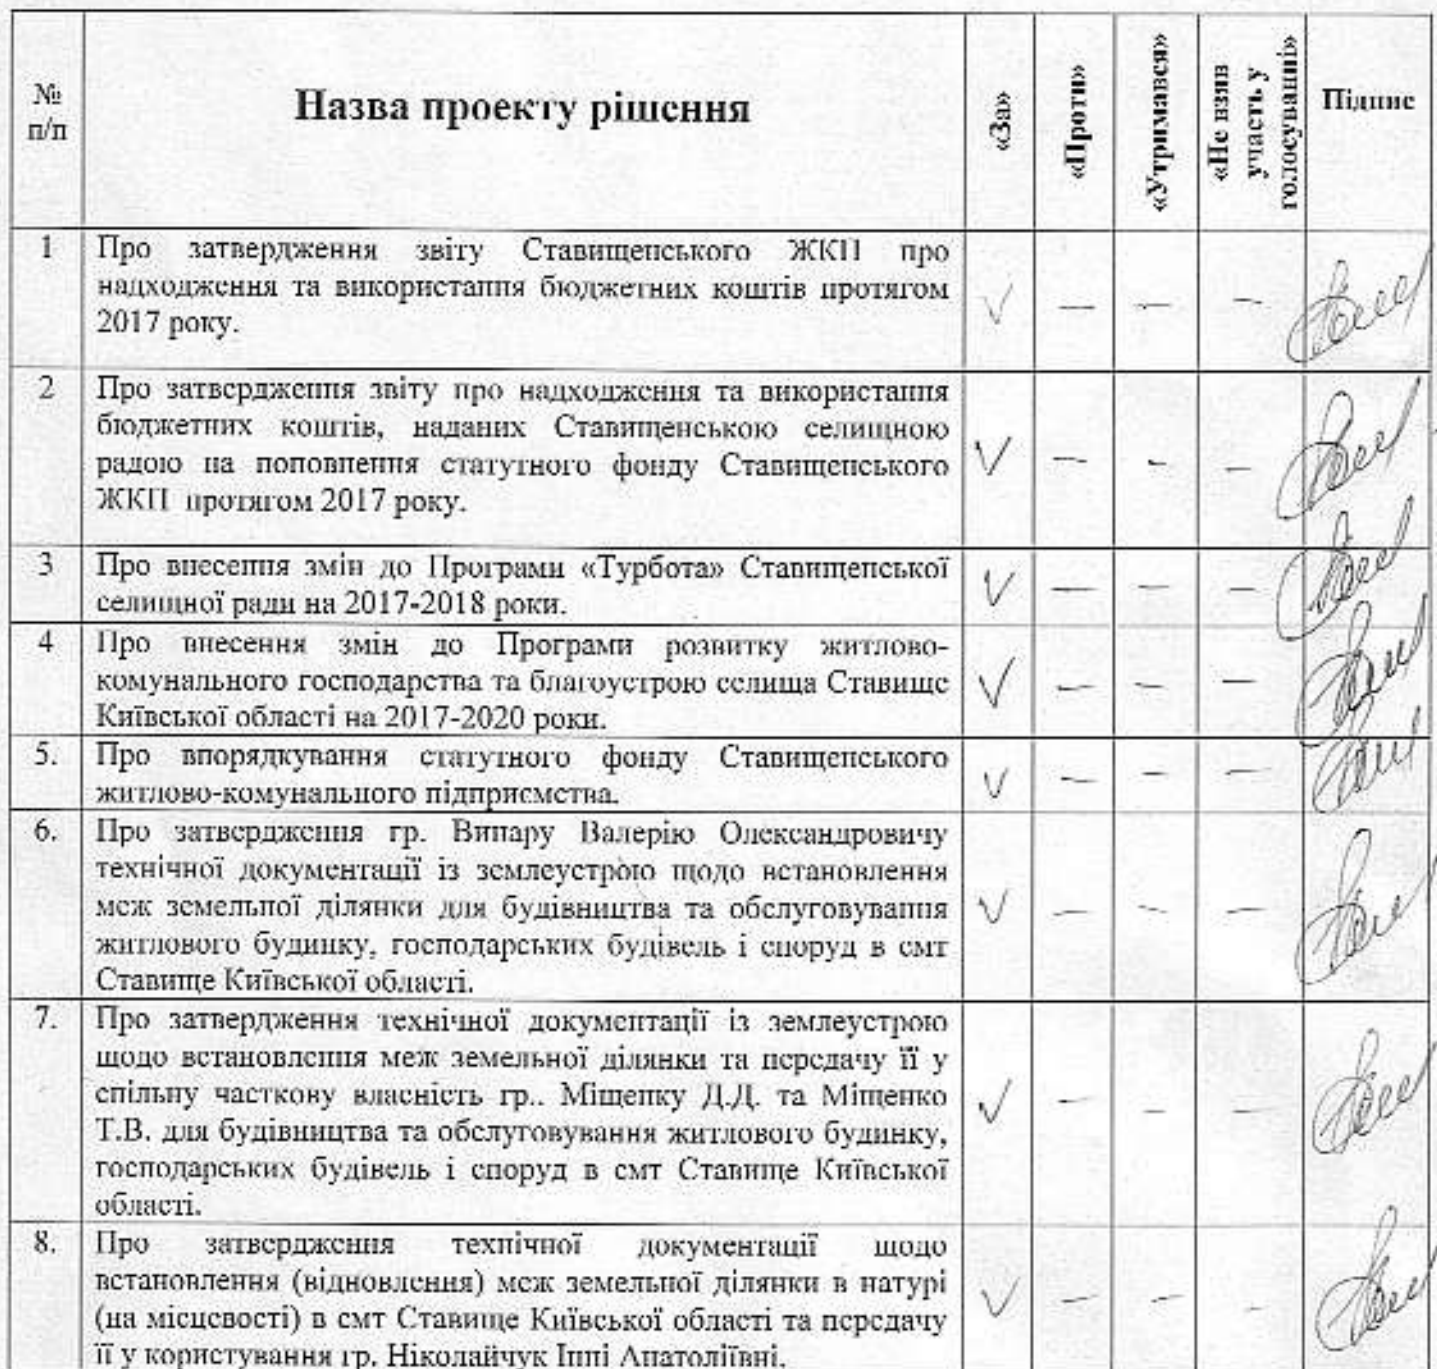 №
п/п
Назва проекту рішення
«За»
«Проти»
«Утримався»
«Не взяв
участь у
голосуванні»
Підпис
1
Про затвердження звіту Ставищенського ЖКП про
надходження та використання бюджетних коштів протягом
2017 року.
2
Про затвердження звіту про надходження та використання
бюджетних коштів, наданих Ставищенською селищною
радою на поповнення статутного фонду Ставищенського
ЖКП протягом 2017 року.
3
Про внесення змін до Програми «Турбота» Ставищенської
селищної ради на 2017-2018 роки.
4
Про внесення змін до Програми розвитку житлово-
комунального господарства та благоустрою селища Ставище
Київської області на 2017-2020 роки.
5.
Про впорядкування статутного фонду Ставищенського
житлово-комунального підприємства.
6.
Про затвердження гр. Випару Валерію Олександровичу
технічної документації із землеустрою щодо встановлення
меж земельної ділянки для будівництва та обслуговування
житлового будинку, господарських будівель і споруд в смт
Ставище Київської області.
7.
Про затвердження технічної документації із землеустрою
щодо встановлення меж земельної ділянки та передачу її у
спільну часткову власність гр.. Міщенку Д.Д. та Міщенко
Т.В. для будівництва та обслуговування житлового будинку,
господарських будівель і споруд в смт Ставище Київської
області.
8.
Про затвердження технічної документації щодо
встановлення (відновлення) меж земельної ділянки в натурі
(на місцевості) в смт Ставище Київської області та передачу
її у користування гр. Ніколайчук Інні Анатоліївні.